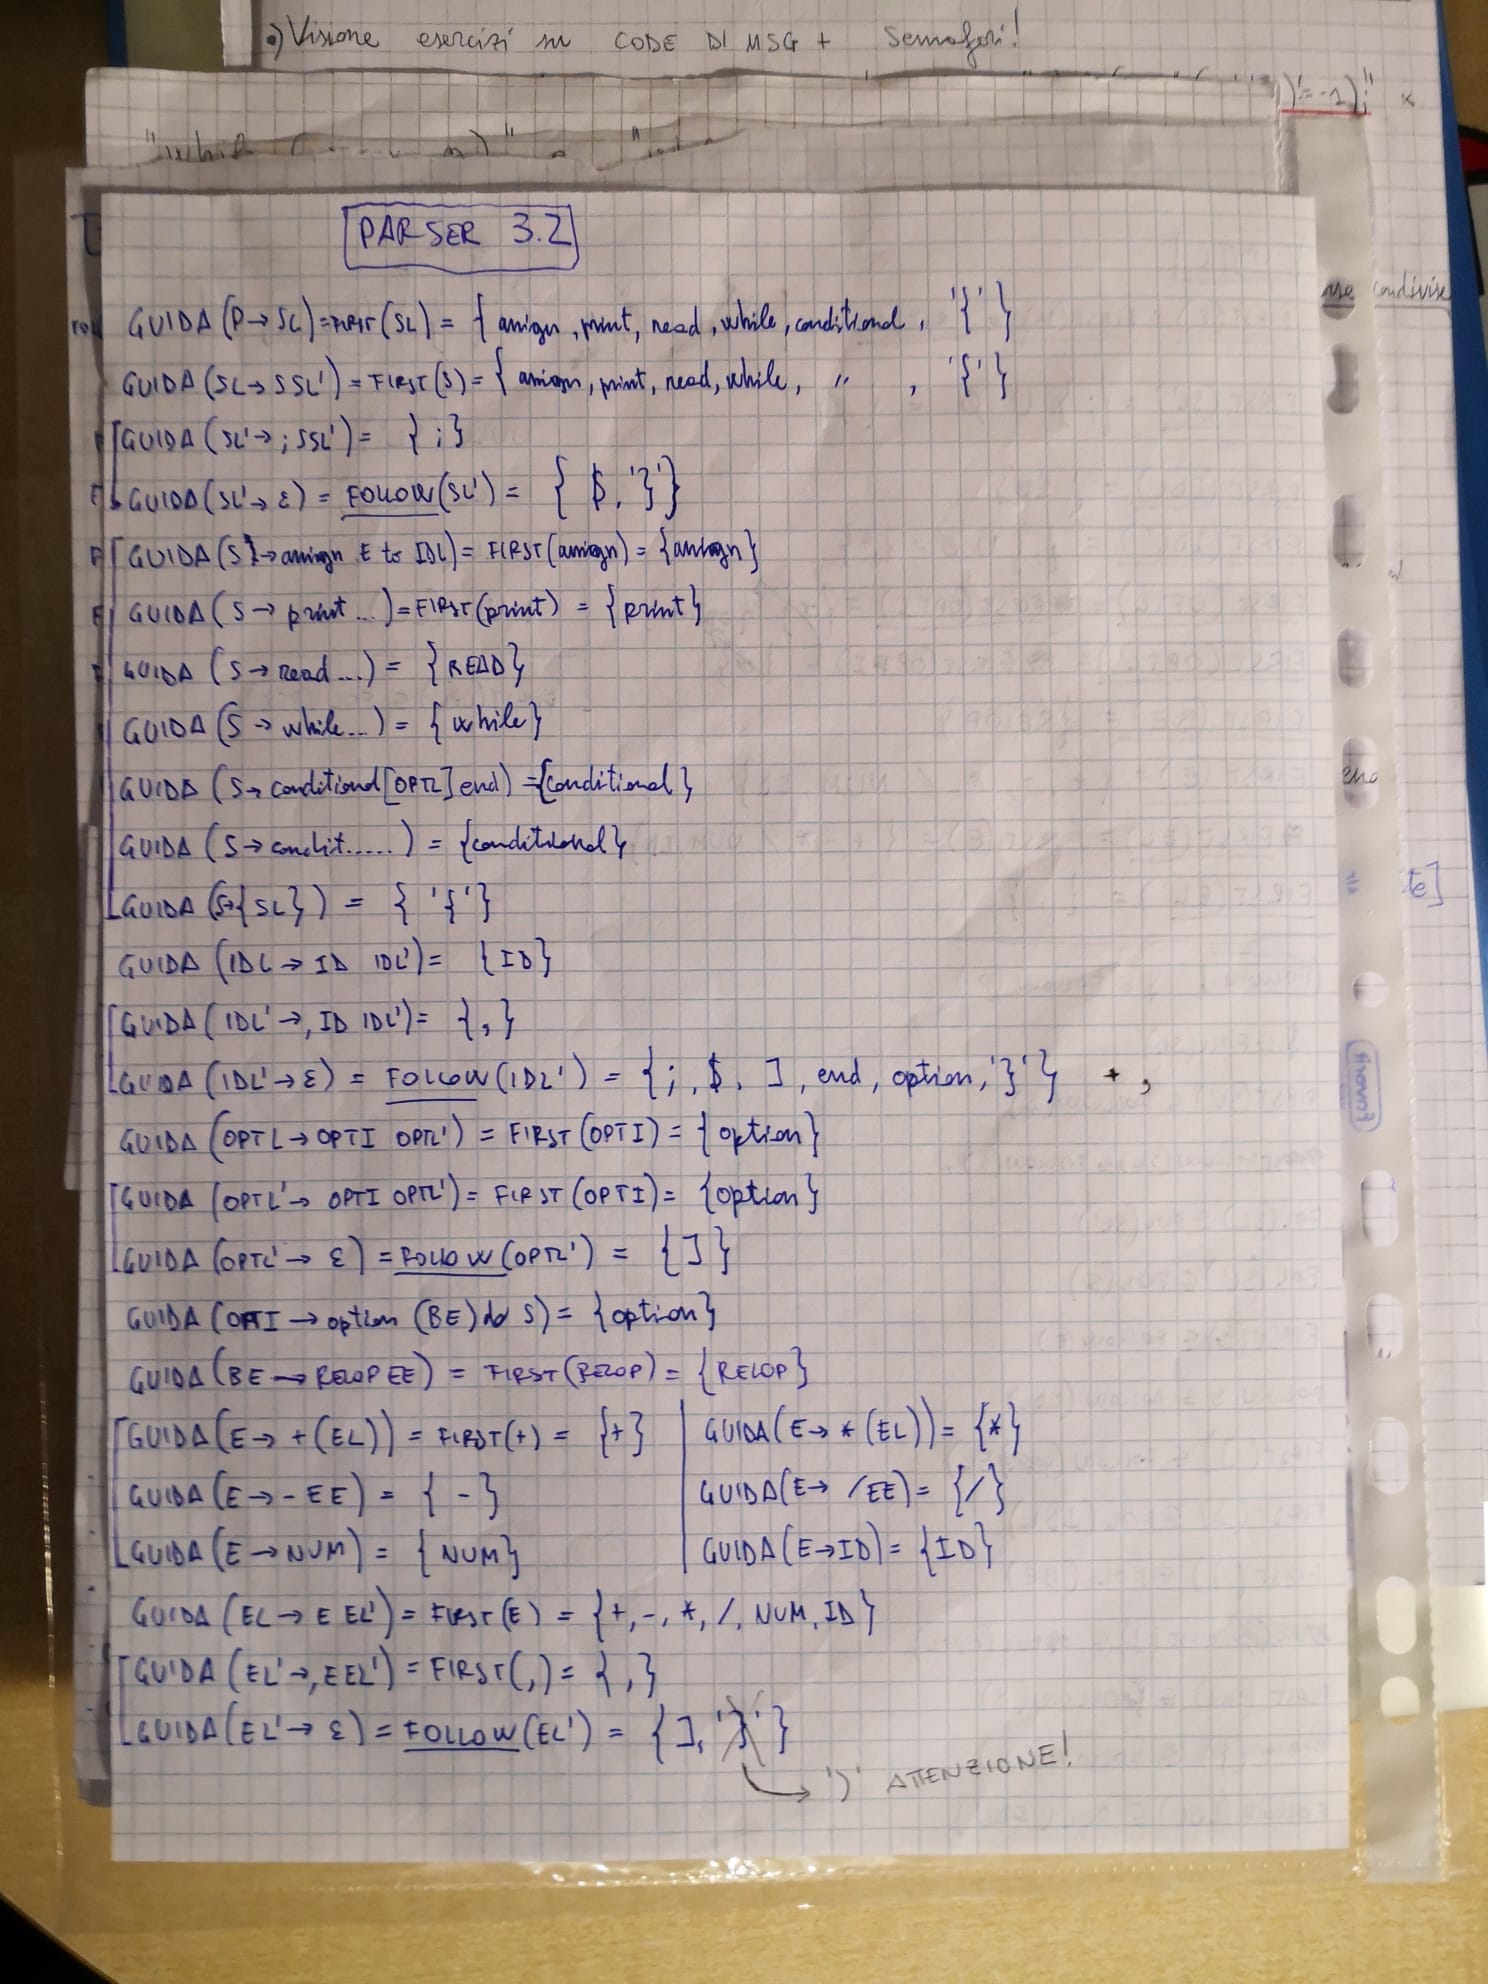 •) Visione esercizi su CODE DI MSG + Semafori!
)!= -1);"
condivise
PARSER 3.2
GUIDA (P → SL) = FIRST (SL) = { assign, print, read, while, conditional, '{' }
GUIDA (SL → S SL') = FIRST (S) = { assign, print, read, while, " , '{' }
GUIDA (SL' → ; S SL') = { ; }
GUIDA (SL' → ε) = FOLLOW (SL') = { $, '}' }
GUIDA (S → assign E to IDL) = FIRST (assign) = {assign}
GUIDA (S → print ...) = FIRST (print) = {print}
GUIDA (S → read ...) = {READ}
GUIDA (S → while ...) = {while}
GUIDA (S → conditional [OPTL] end) = {conditional}
GUIDA (S → condit......) = {conditional}
GUIDA (S → { SL }) = { '{' }
GUIDA (IDL → ID IDL') = {ID}
GUIDA (IDL' → , ID IDL') = { , }
GUIDA (IDL' → ε) = FOLLOW (IDL') = { ; , $, ], end, option, '}' } + ,
GUIDA (OPTL → OPTI OPTL') = FIRST (OPTI) = {option}
GUIDA (OPTL' → OPTI OPTL') = FIRST (OPTI) = {option}
GUIDA (OPTL' → ε) = FOLLOW (OPTL') = { ] }
GUIDA (OPTI → option (BE) do S) = {option}
GUIDA (BE → RELOP E E) = FIRST (RELOP) = {RELOP}
GUIDA (E → + (EL)) = FIRST (+) = {+} GUIDA (E → * (EL)) = {*}
GUIDA (E → - E E) = { - } GUIDA (E → / E E) = {/}
GUIDA (E → NUM) = {NUM} GUIDA (E → ID) = {ID}
GUIDA (EL → E EL') = FIRST (E) = {+, -, *, /, NUM, ID}
GUIDA (EL' → , E EL') = FIRST (,) = { , }
GUIDA (EL' → ε) = FOLLOW (EL') = { ], '}' }
→ ')' ATTENZIONE!
end
te]
Favorit